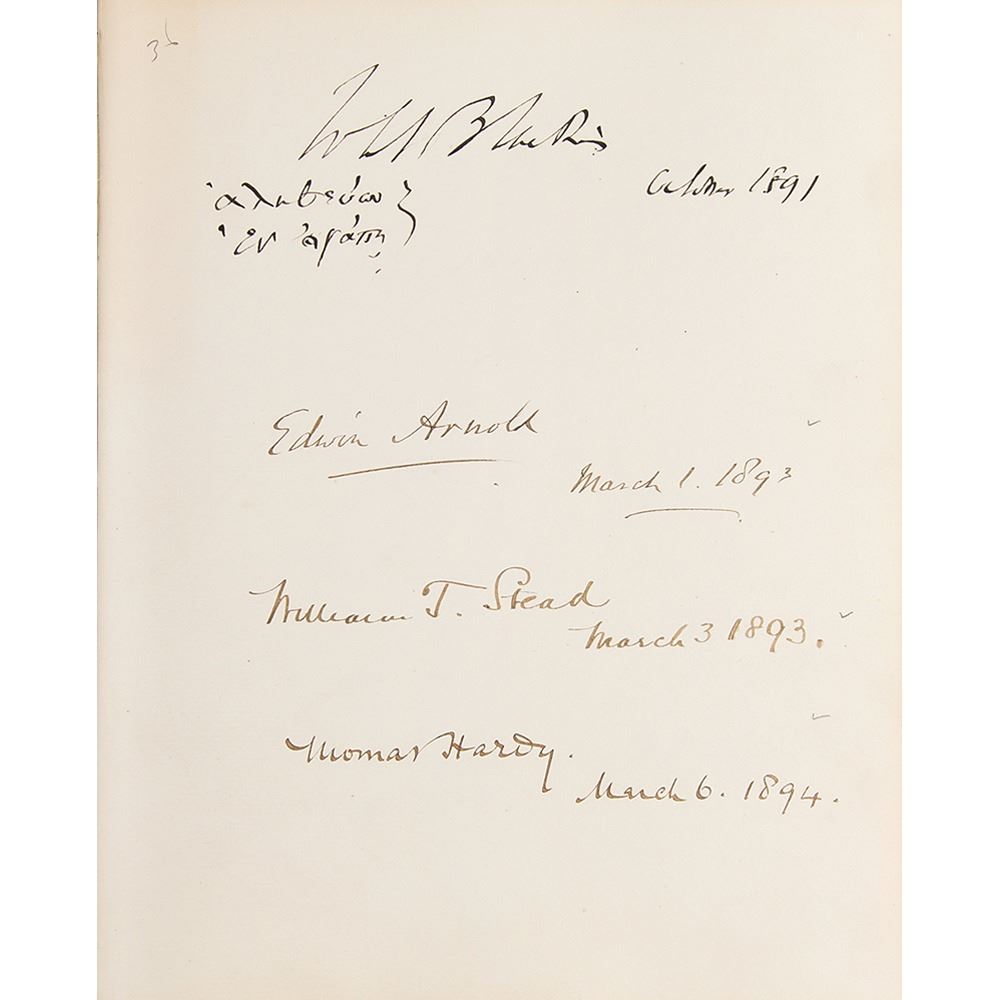 36
Blackie
ἀληθεύων
ἐν ἀγάπῃ
October 1891
Edwin Arnold
March 1. 1893
William T. Stead
March 3 1893.
Thomas Hardy.
March 6. 1894.